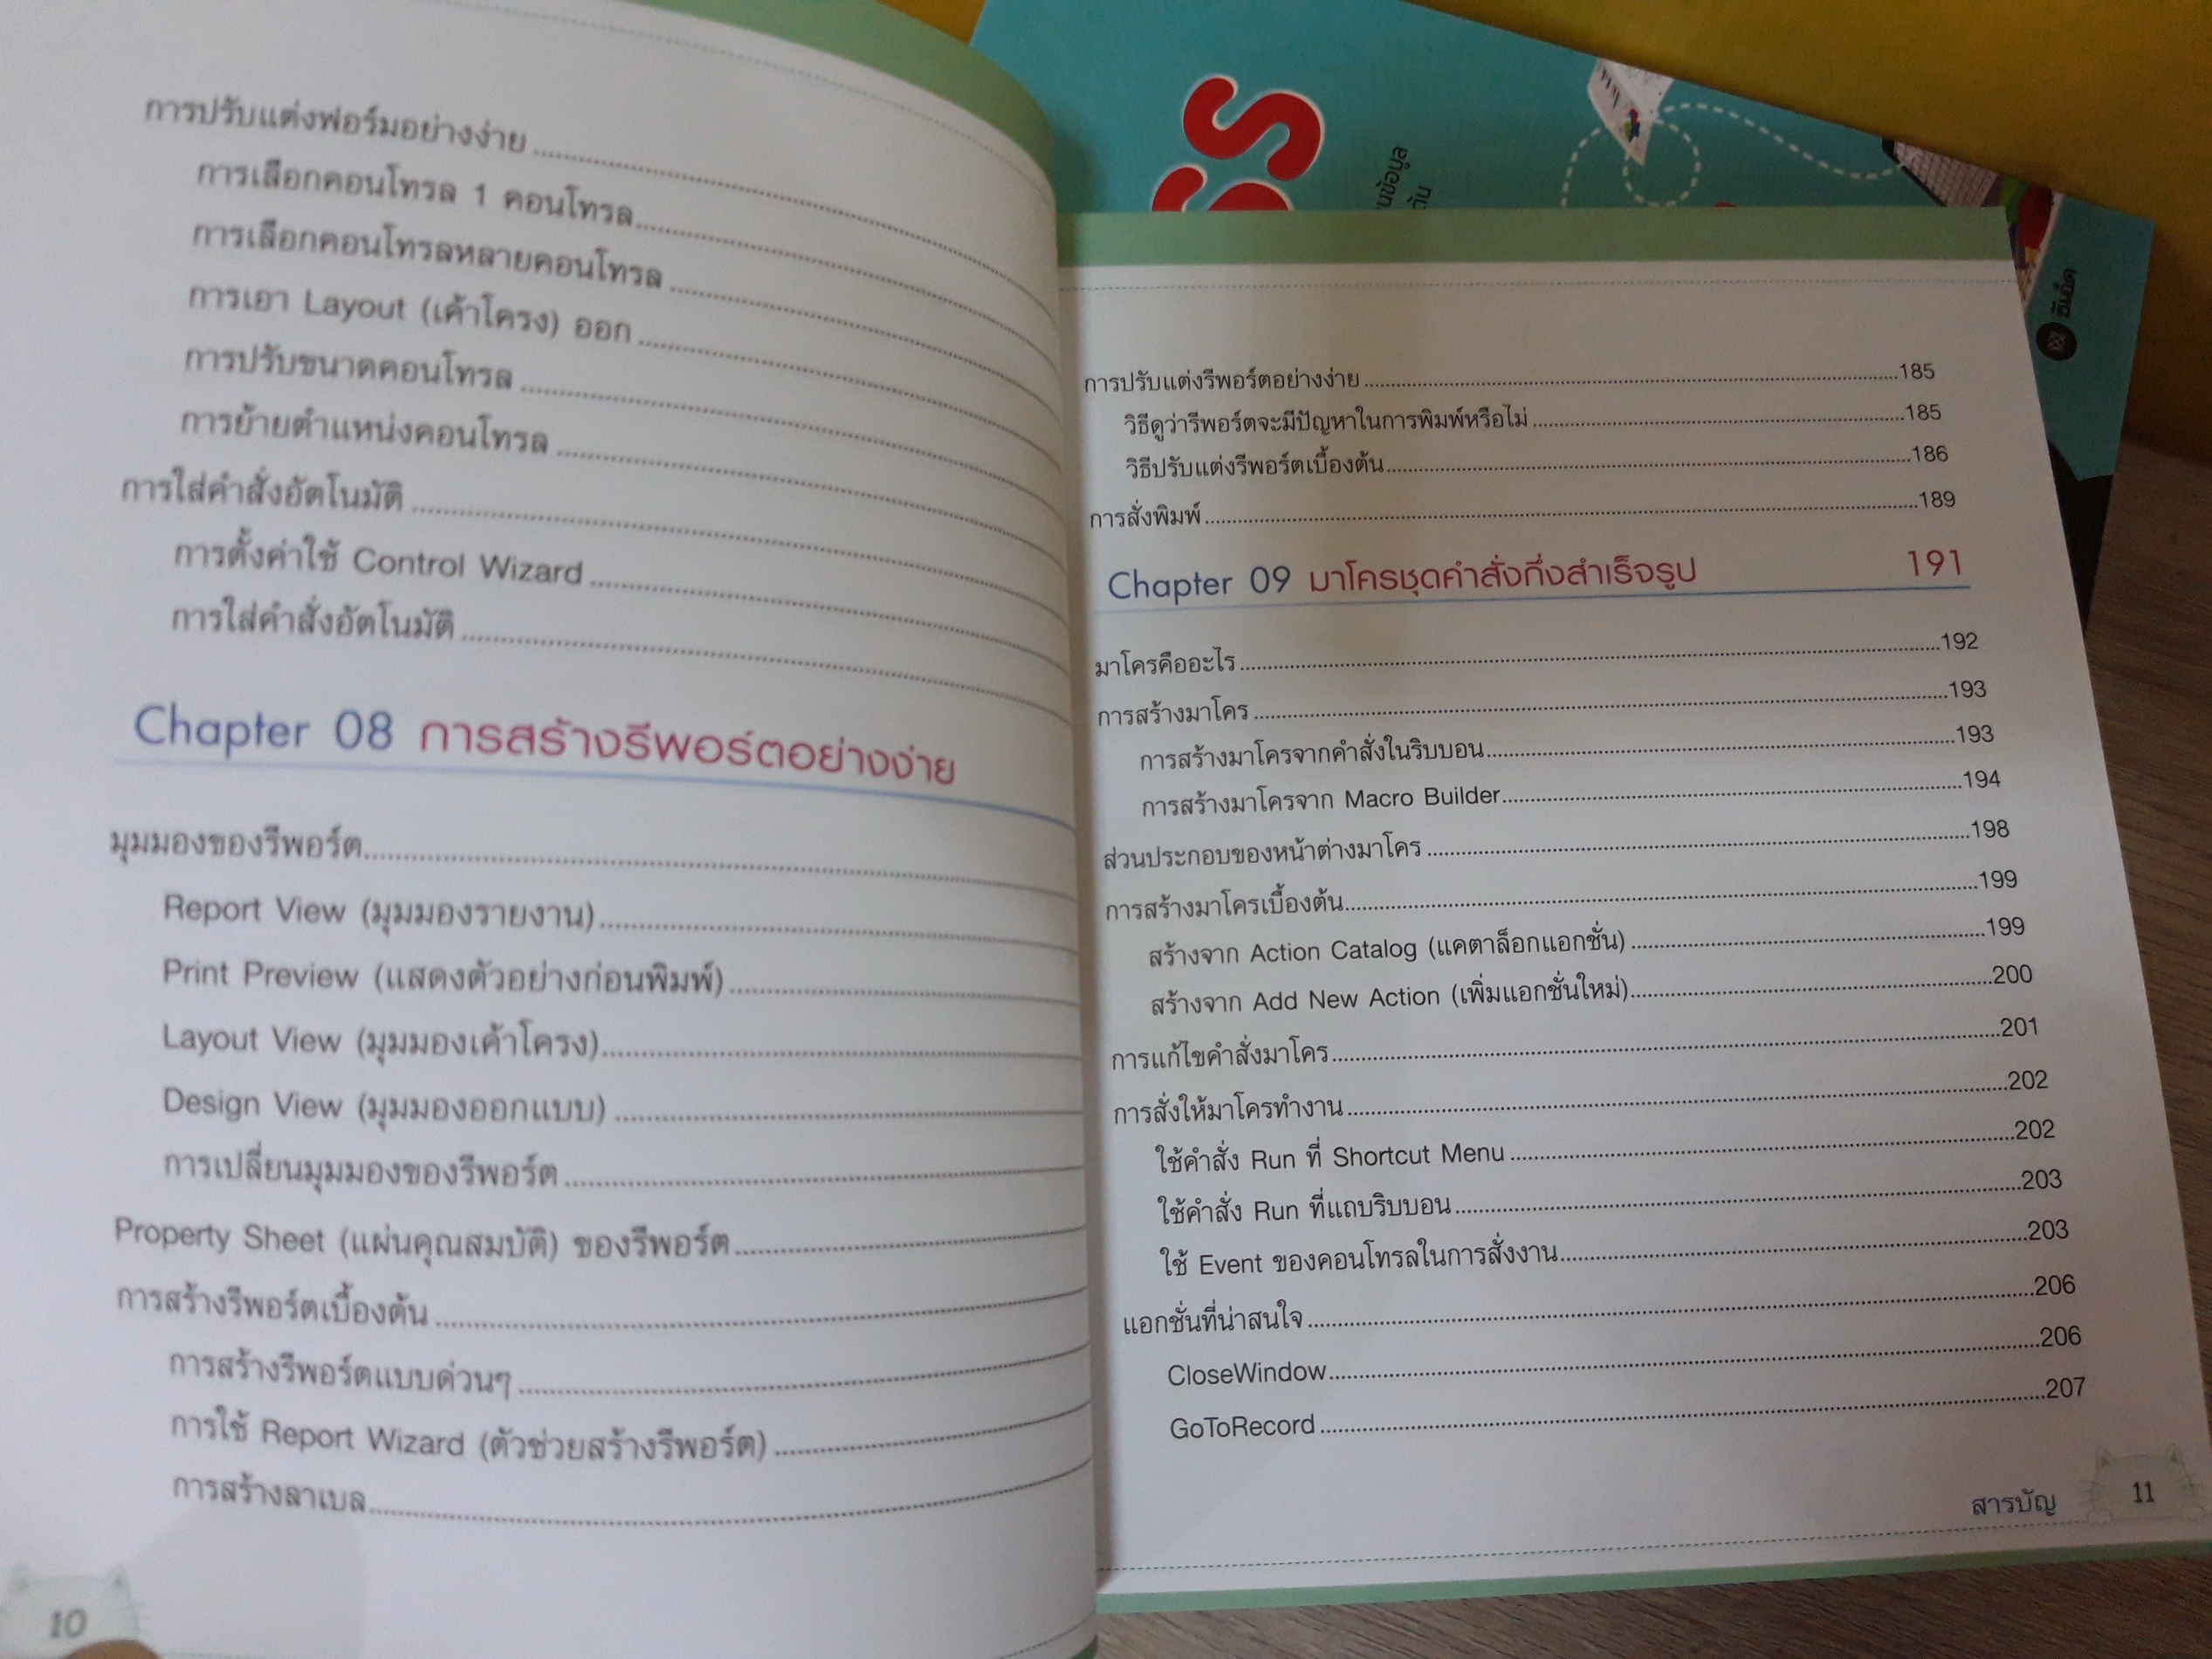 การปรับแต่งฟอร์มอย่างง่าย
การเลือกคอนโทรล 1 คอนโทรล
การเลือกคอนโทรลหลายคอนโทรล
การเอา Layout (เค้าโครง) ออก
การปรับขนาดคอนโทรล
การย้ายตำแหน่งคอนโทรล
การใส่คำสั่งอัตโนมัติ
การตั้งค่าใช้ Control Wizard
การใส่คำสั่งอัตโนมัติ
Chapter 08 การสร้างรีพอร์ตอย่างง่าย
มุมมองของรีพอร์ต
Report View (มุมมองรายงาน)
Print Preview (แสดงตัวอย่างก่อนพิมพ์)
Layout View (มุมมองเค้าโครง)
Design View (มุมมองออกแบบ)
การเปลี่ยนมุมมองของรีพอร์ต
Property Sheet (แผ่นคุณสมบัติ) ของรีพอร์ต
การสร้างรีพอร์ตเบื้องต้น
การสร้างรีพอร์ตแบบด่วนๆ
การใช้ Report Wizard (ตัวช่วยสร้างรีพอร์ต)
การสร้างลาเบล
10
การปรับแต่งรีพอร์ตอย่างง่าย 185
วิธีดูว่ารีพอร์ตจะมีปัญหาในการพิมพ์หรือไม่ 185
วิธีปรับแต่งรีพอร์ตเบื้องต้น 186
การสั่งพิมพ์ 189
Chapter 09 มาโครชุดคำสั่งกึ่งสำเร็จรูป 191
มาโครคืออะไร 192
การสร้างมาโคร 193
การสร้างมาโครจากคำสั่งในริบบอน 193
การสร้างมาโครจาก Macro Builder 194
ส่วนประกอบของหน้าต่างมาโคร 198
การสร้างมาโครเบื้องต้น 199
สร้างจาก Action Catalog (แคตาล็อกแอกชั่น) 199
สร้างจาก Add New Action (เพิ่มแอกชั่นใหม่) 200
การแก้ไขคำสั่งมาโคร 201
การสั่งให้มาโครทำงาน 202
ใช้คำสั่ง Run ที่ Shortcut Menu 202
ใช้คำสั่ง Run ที่แถบริบบอน 203
ใช้ Event ของคอนโทรลในการสั่งงาน 203
แอกชั่นที่น่าสนใจ 206
CloseWindow 206
GoToRecord 207
สารบัญ 11
ซีเอ็ด